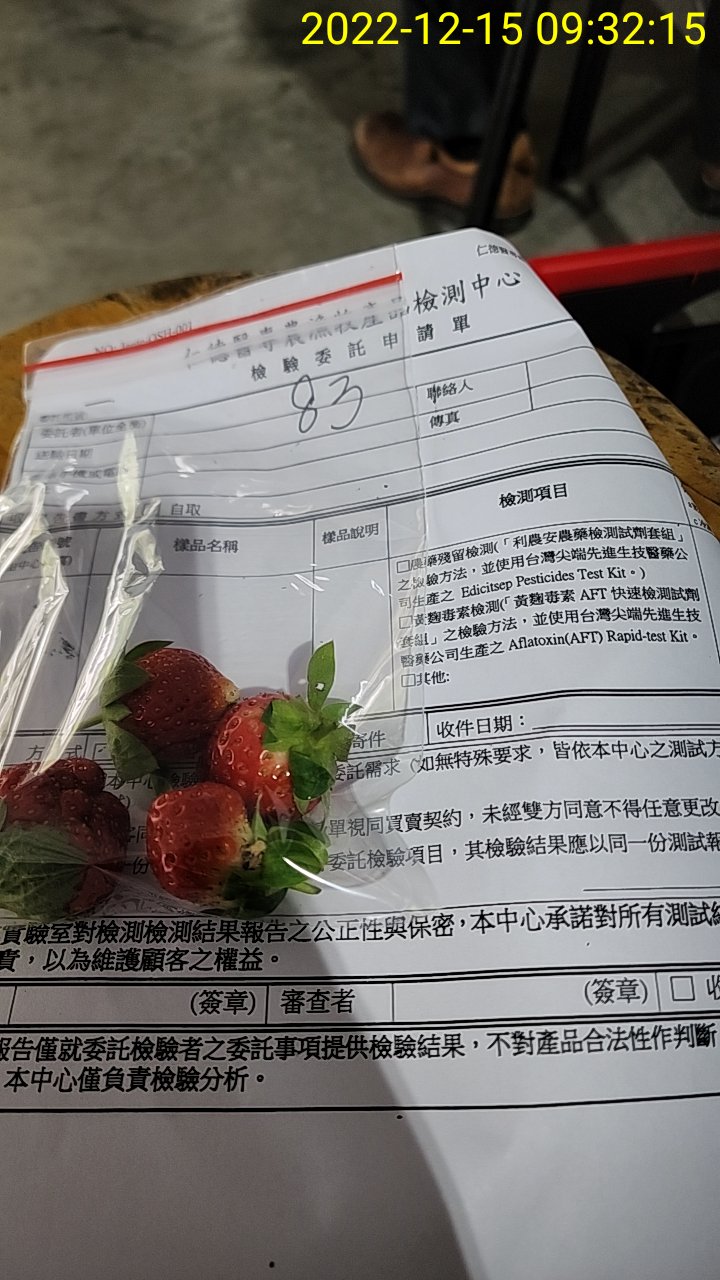 2022-12-15 09:32:15
仁德醫專農漁牧產品檢測中心
檢驗委託申請單
83
聯絡人
委託者(單位全銜)
傳真
送驗日期
自取
檢測項目
樣品名稱
樣品說明
□農藥殘留檢測(「利農安農藥檢測試劑套組」
之檢驗方法，並使用台灣尖端先進生技醫藥公
司生產之 Edicitsep Pesticides Test Kit。)
□黃麴毒素檢測(「黃麴毒素 AFT 快速檢測試劑
套組」之檢驗方法，並使用台灣尖端先進生技
醫藥公司生產之 Aflatoxin(AFT) Rapid-test Kit。
□其他:
寄件
收件日期：
委託需求（如無特殊要求，皆依本中心之測試方
單視同買賣契約，未經雙方同意不得任意更改
委託檢驗項目，其檢驗結果應以同一份測試報
實驗室對檢測檢測結果報告之公正性與保密，本中心承諾對所有測試結
責，以為維護顧客之權益。
(簽章) 審查者 (簽章) □ 收
報告僅就委託檢驗者之委託事項提供檢驗結果，不對產品合法性作判斷
本中心僅負責檢驗分析。